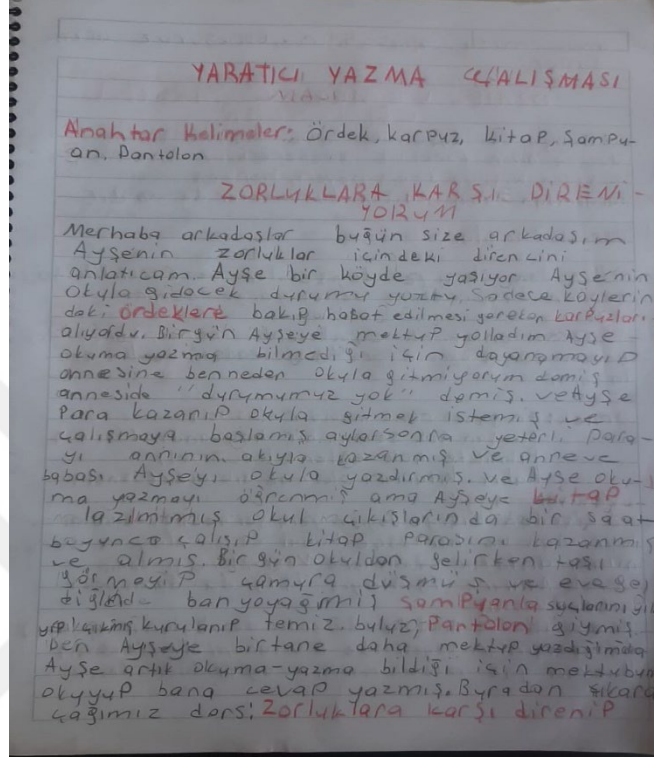 YARATICI YAZMA ÇALIŞMASI
Anahtar Kelimeler: Ördek, karpuz, kitap, Şampu-
an, Pantolon
ZORLUKLARA KARŞI DİRENİ-
YORUM
Merhaba arkadaşlar bugün size arkadaşım
Ayşenin zorluklar içindeki direncini
anlatıcam. Ayşe bir köyde yaşıyor Ayşe'nin
Okula gidecek durumu yoktu, Sadece köylerin
deki ördeklere bakıp hasat edilmesi gereken karpuzları
alıyordu. Birgün Ayşeye mektup yolladım Ayşe
okuma yazma bilmediği için dayanamayıp
annesine ben neden okula gitmiyorum demiş
anneside "durumumuz yok" demiş. ve Ayşe
Para kazanıp okula gitmek istemiş ve
çalışmaya başlamış aylar sonra yeterli para-
yı kazanmış ve anneve
babası Ayşeyi okula yazdırmış. ve Ayşe oku-
ma yazmayı öğrenmiş ama Ayşeye kitap
lazımmış okul çıkışlarında bir saat
boyunca çalışıp kitap parasını kazanmış
ve almış. Bir gün okuldan gelirken taşı
görmeyip çamura düşmüş ve eve gel
diğinde banyoya girmiş Şampuanla saçlarını yı
kurulanıp temiz buluz, Pantolon giymiş
Ben Ayşeye birtane daha mektup yazdığımda
Ayşe artık okuma-yazma bildiği için mektubun
okuyup bana cevap yazmış. Buradan çıkara
cağımız ders: Zorluklara karşı direnip